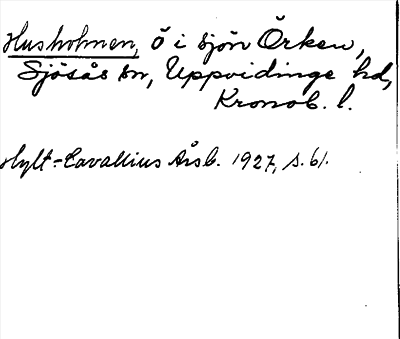 Husholmen, ö i sjön Örken,
Sjösås sn, Uppvidinge hd,
Kronob. l.
Hylt-Cavallius Årsb. 1927, s. 61.